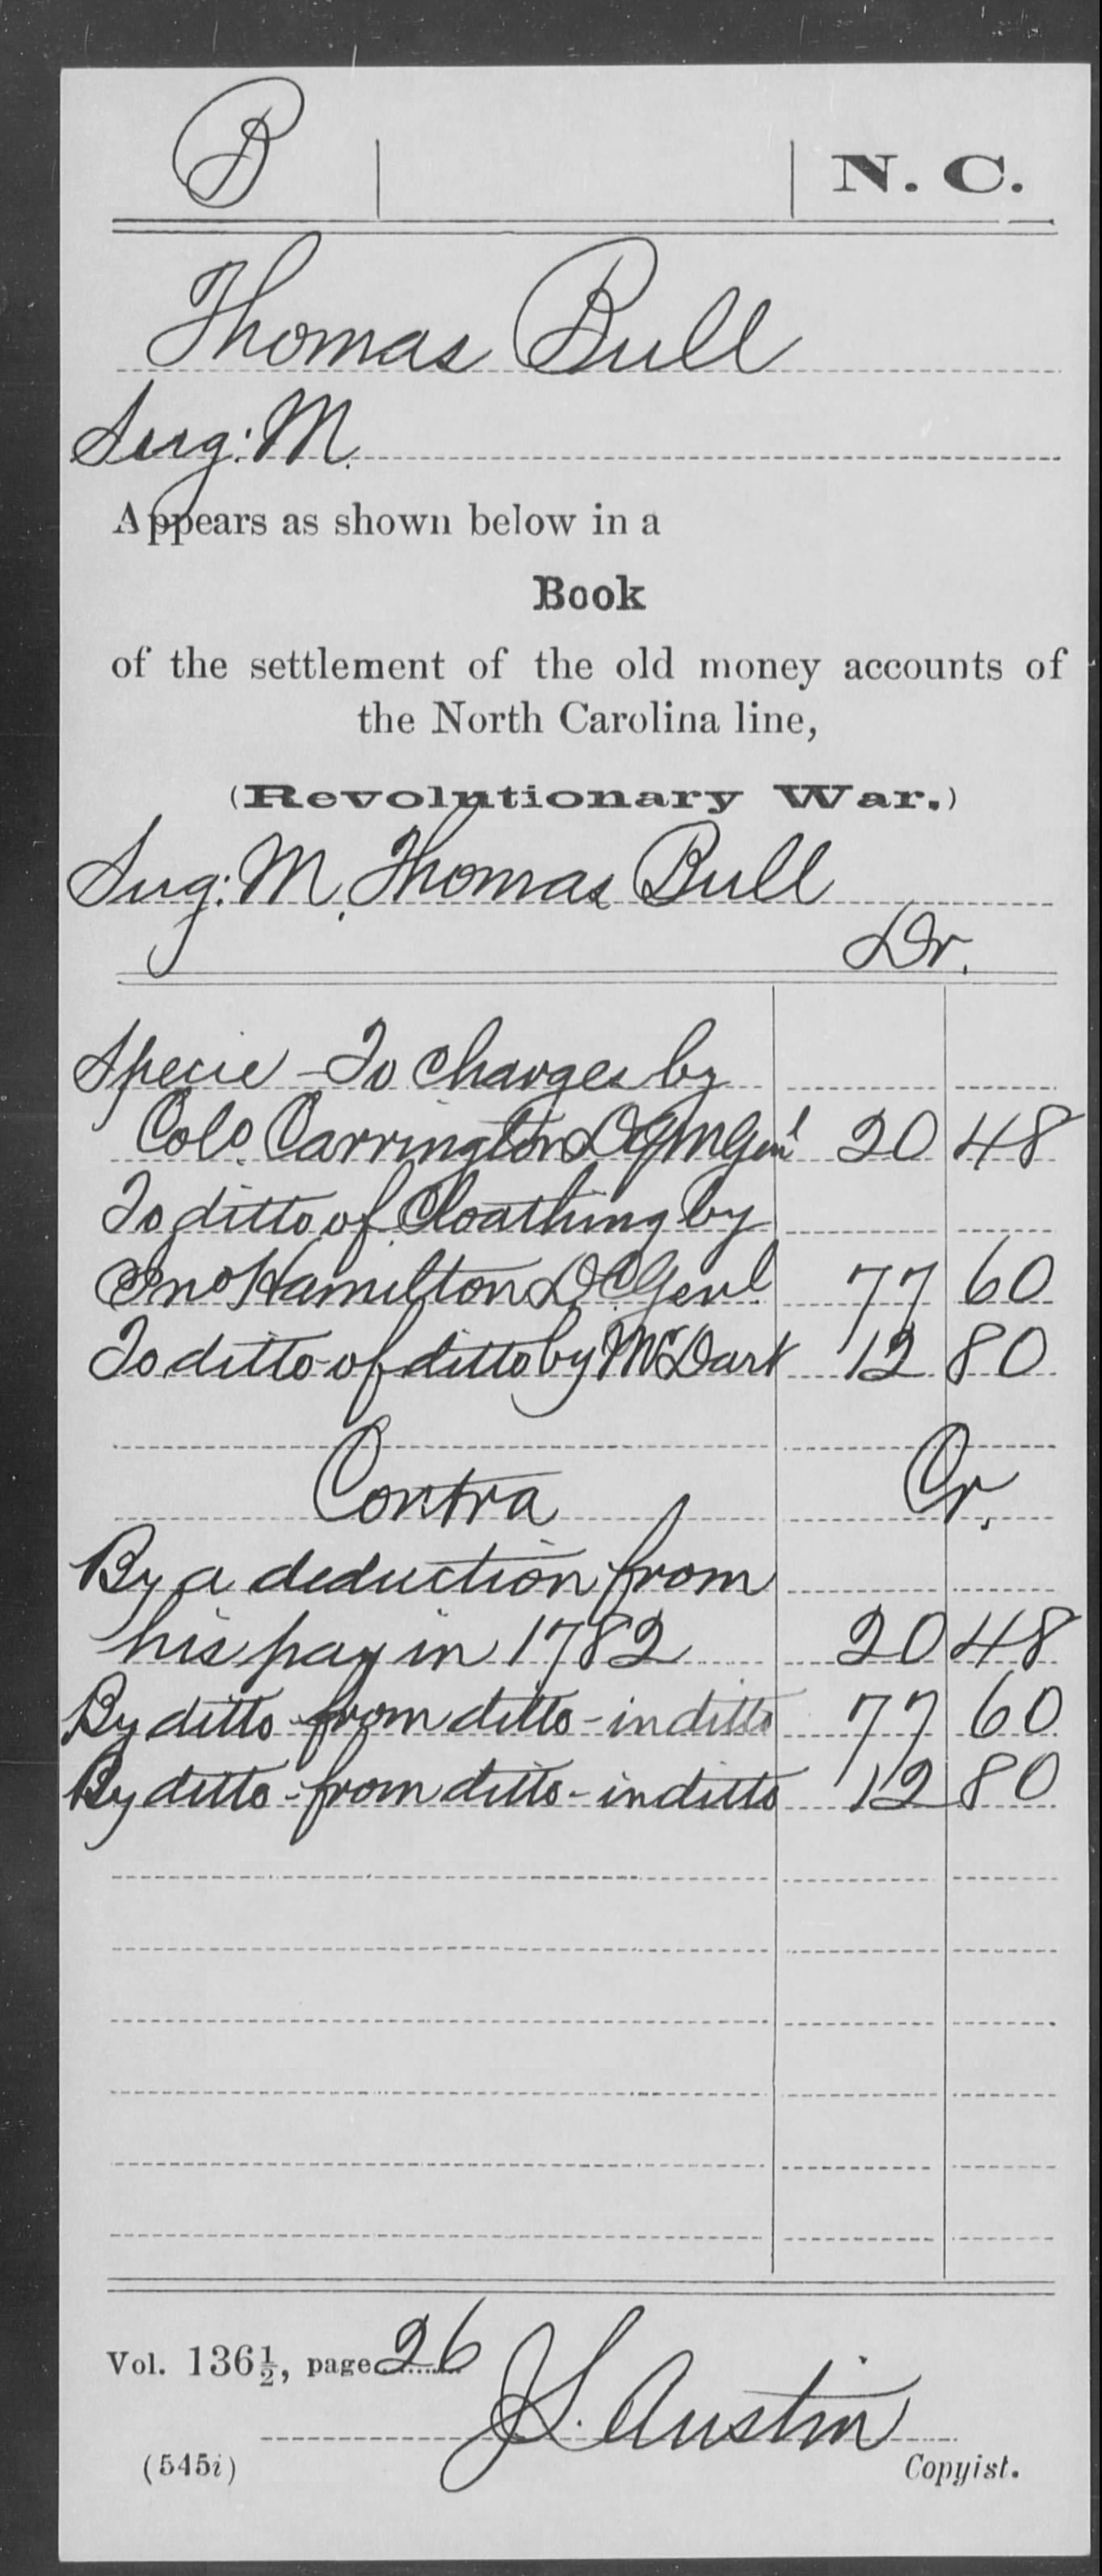 B N. C.
Thomas Bull
Surg: M.
Appears as shown below in a
Book
of the settlement of the old money accounts of
the North Carolina line,
(Revolutionary War.)
Surg: M. Thomas Bull
Dr.
Specie - To charges by
Colo. Carrington DQMGenl 20 48
To ditto of Cloathing by
Jno Hamilton DCGenl 77 60
To ditto of ditto by Mr Dark 12 80
Contra Cr.
By a deduction from
his pay in 1782 20 48
By ditto from ditto - in ditto 77 60
By ditto - from ditto - in ditto 12 80
Vol. 136½, page 26
J S. Austin
(545i) Copyist.